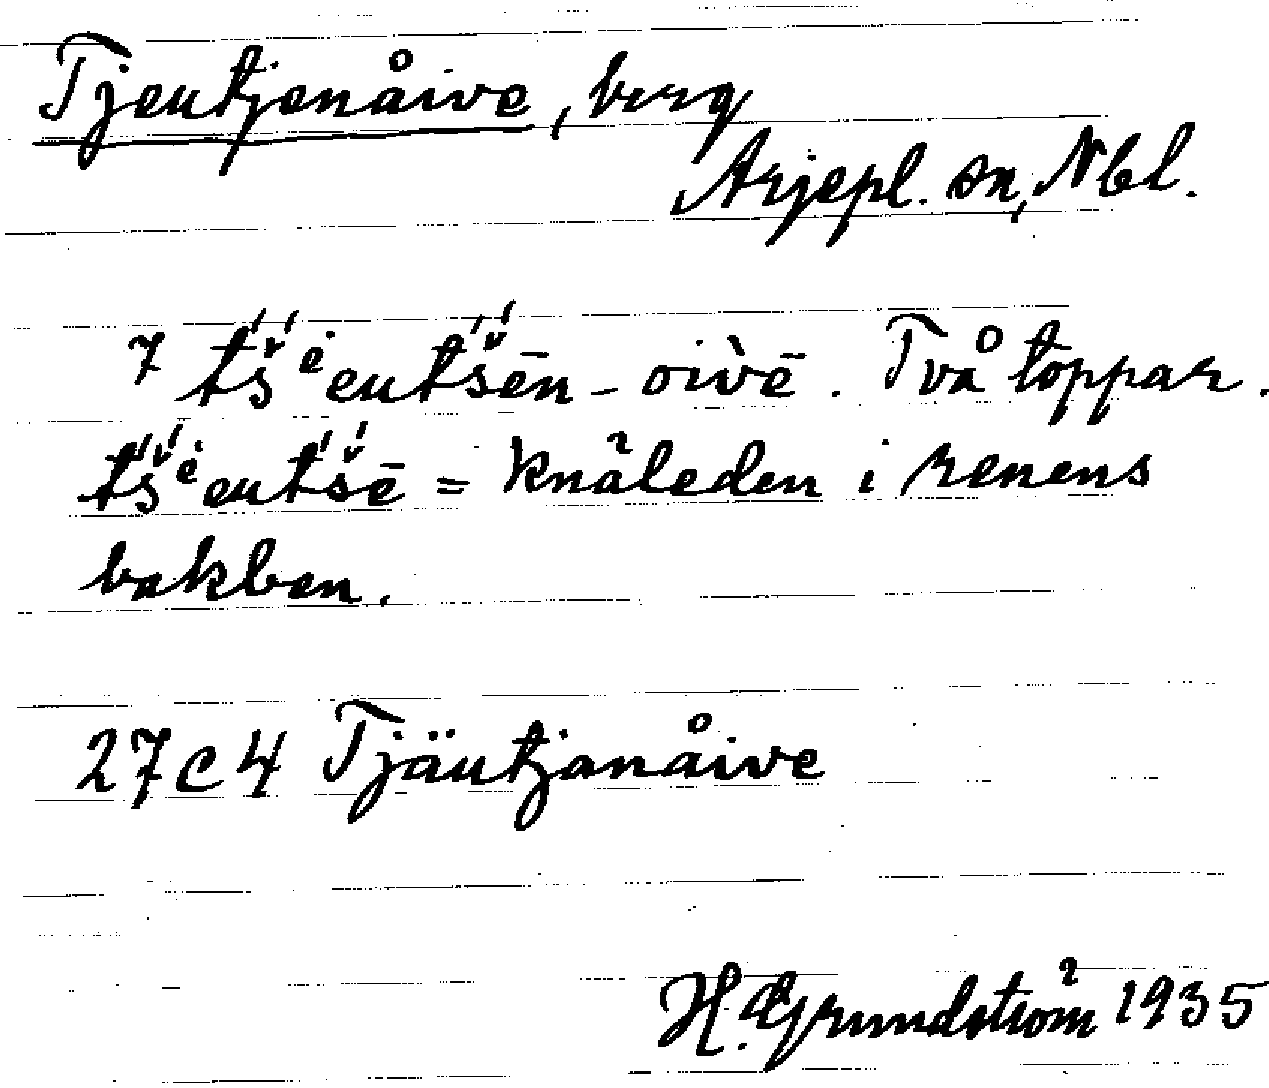 Tjeutjenåive, berg
Arjepl. sn, Nbl.
7 t́š́ėeut́š́ēn - oiv̀ē. Två toppar.
t́š́ėeut́š́ē = knäleden i renens
bakben.
27 C 4 Tjäutjanåive
H. Grundström 1935